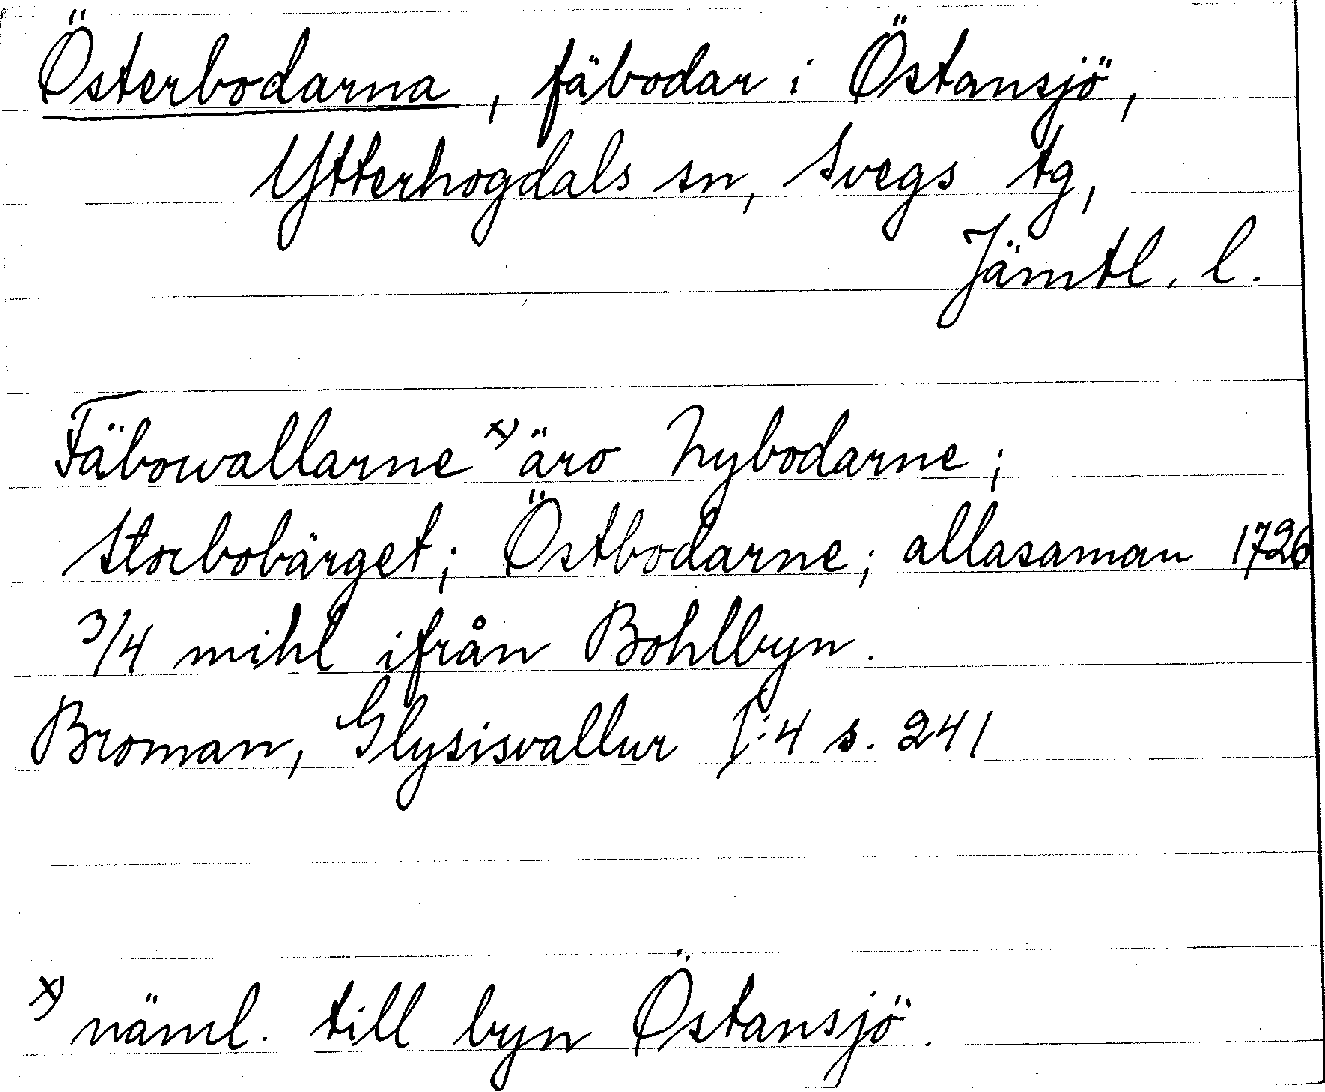 Österbodarna, fäbodar i Östansjö,
Ytterhogdals sn, Svegs tg,
Jämtl. l.
Fäbowallarne x) äro Nybodarne;
Storbobärget; Östbodarne; allasaman 1726
3/4 mihl ifrån Bohlbyn.
Broman, Glysisvallur I:4 s. 241
x) näml. till byn Östansjö.